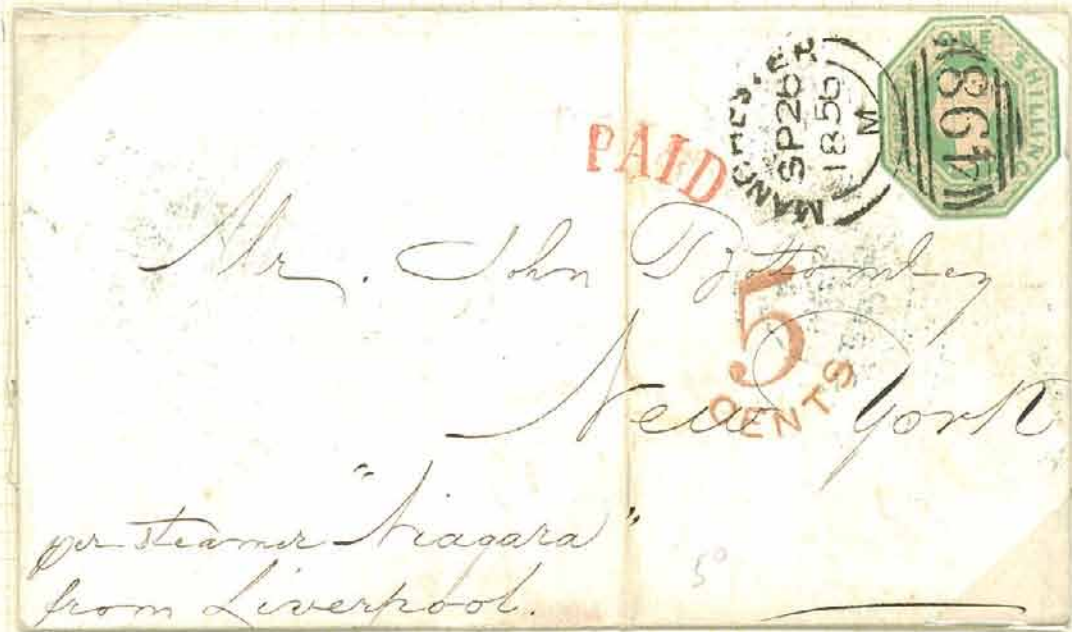 ONE SHILLING
498
MANCHESTER
SP26
1856
M
PAID
Mr. John
5
CENTS
New York
per steamer "Niagara"
from Liverpool.
5°